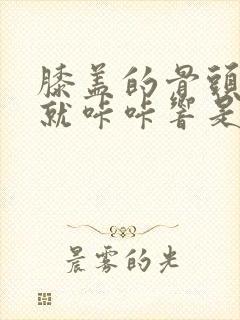 膝盖的骨頭
就咔咔響是
晨雾的光